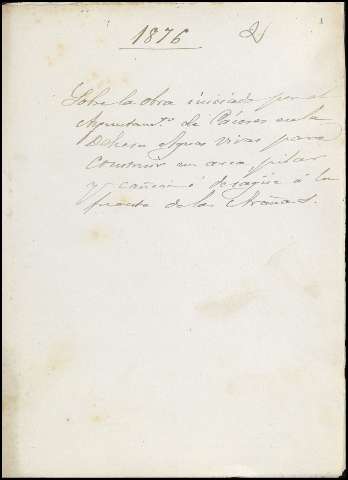 1876
1
Sobre la obra iniciada por el
Ayuntamto. de Cáceres en la
Dehesa Aguas Vivas para
construir un arca pilar
y cañeria desague á la
fuente de las Arañas.